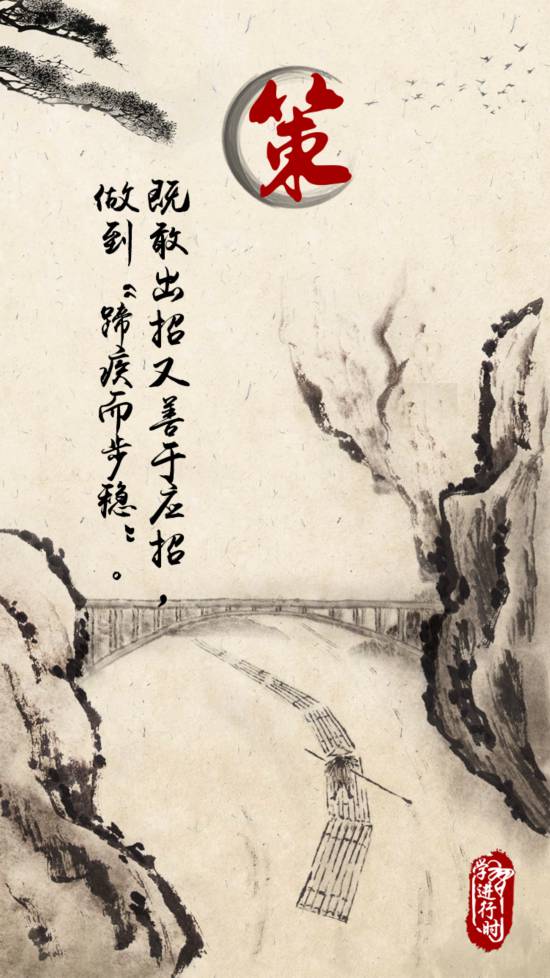 策
既敢出招又善于应招，
做到“蹄疾而步稳”。
学习进行时